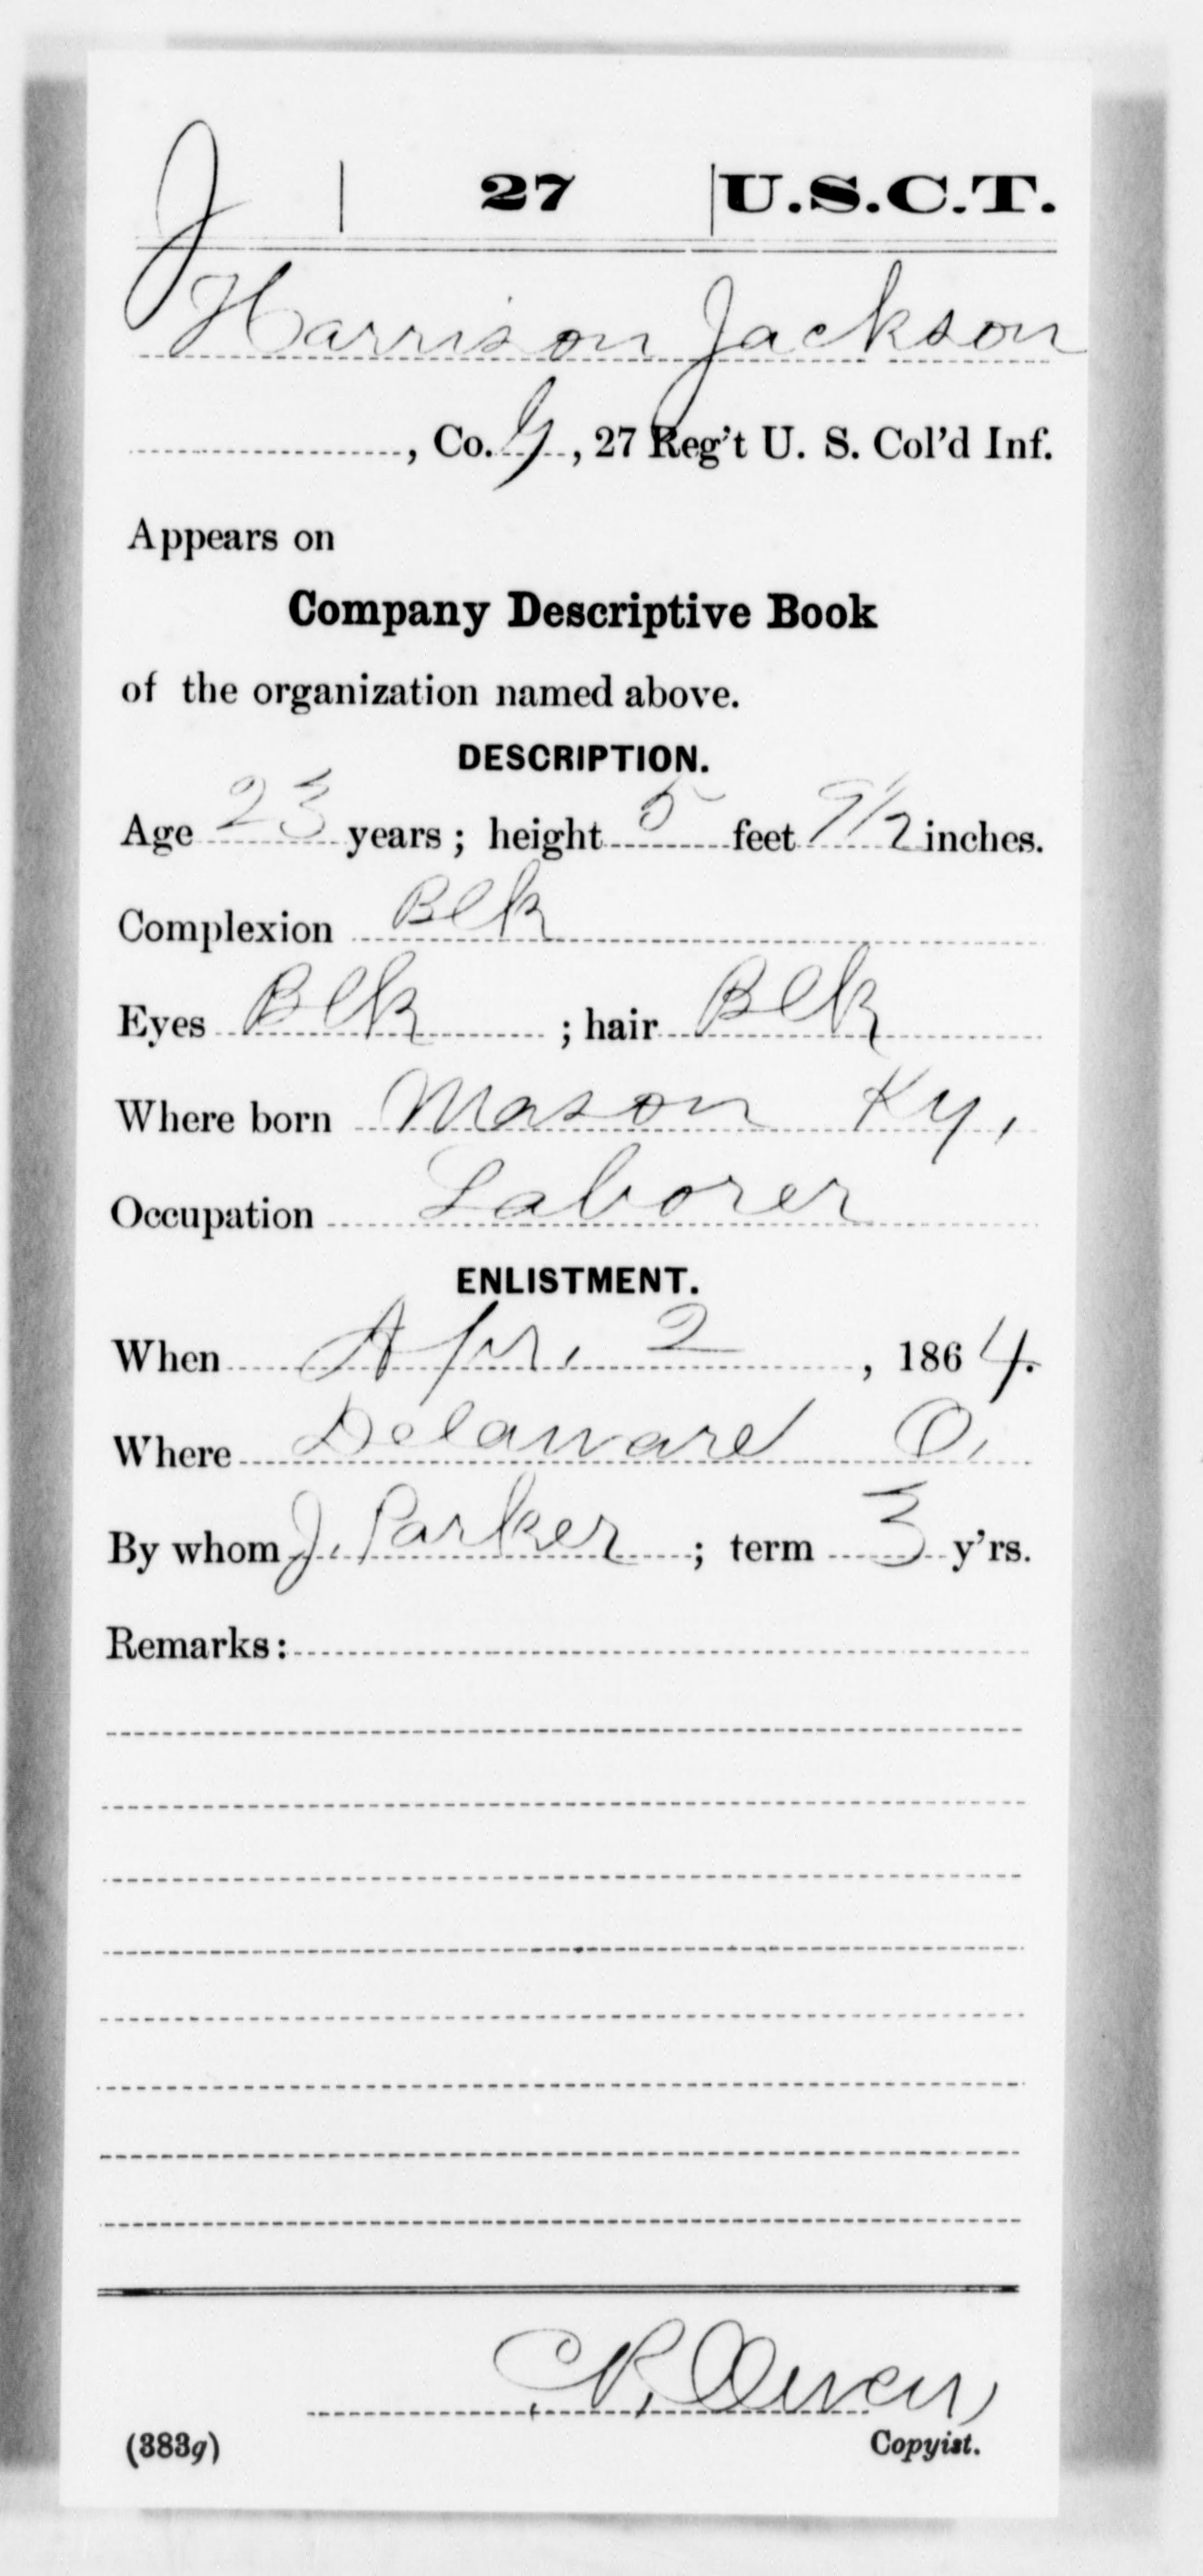 J | 27 | U.S.C.T.
Harrison Jackson
, Co. G, 27 Reg't U. S. Col'd Inf.
Appears on
Company Descriptive Book
of the organization named above.
DESCRIPTION.
Age 23 years; height 5 feet 9 1/2 inches.
Complexion Blk
Eyes Blk; hair Blk
Where born Mason Ky,
Occupation Laborer
ENLISTMENT.
When Apr. 2, 1864.
Where Delaware O,
By whom J. Parker; term 3 y'rs.
Remarks:
C.R. Owen
(383g) Copyist.